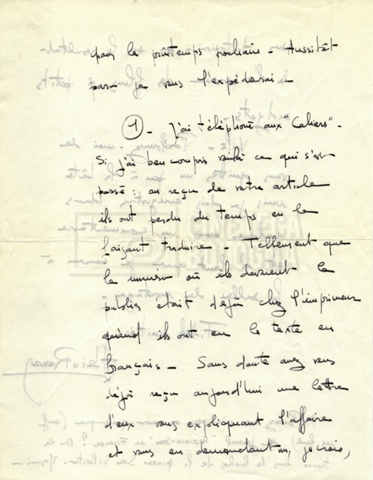 pour le printemps prochain - Aussitôt
paru je vous l'expédierai -
④ - J'ai téléphoné aux "Cahiers" -
Si j'ai bien compris voilà ce qui s'est
passé : au reçu de votre article
ils ont perdu du temps en le
faisant traduire - Tellement que
le numéro où ils devaient le
publier était déjà chez l'imprimeur
quand ils ont eu le texte en
français - Sans doute avez vous
déjà reçu aujourd'hui une lettre
d'eux vous expliquant l'affaire
et vous en demandant, je crois,